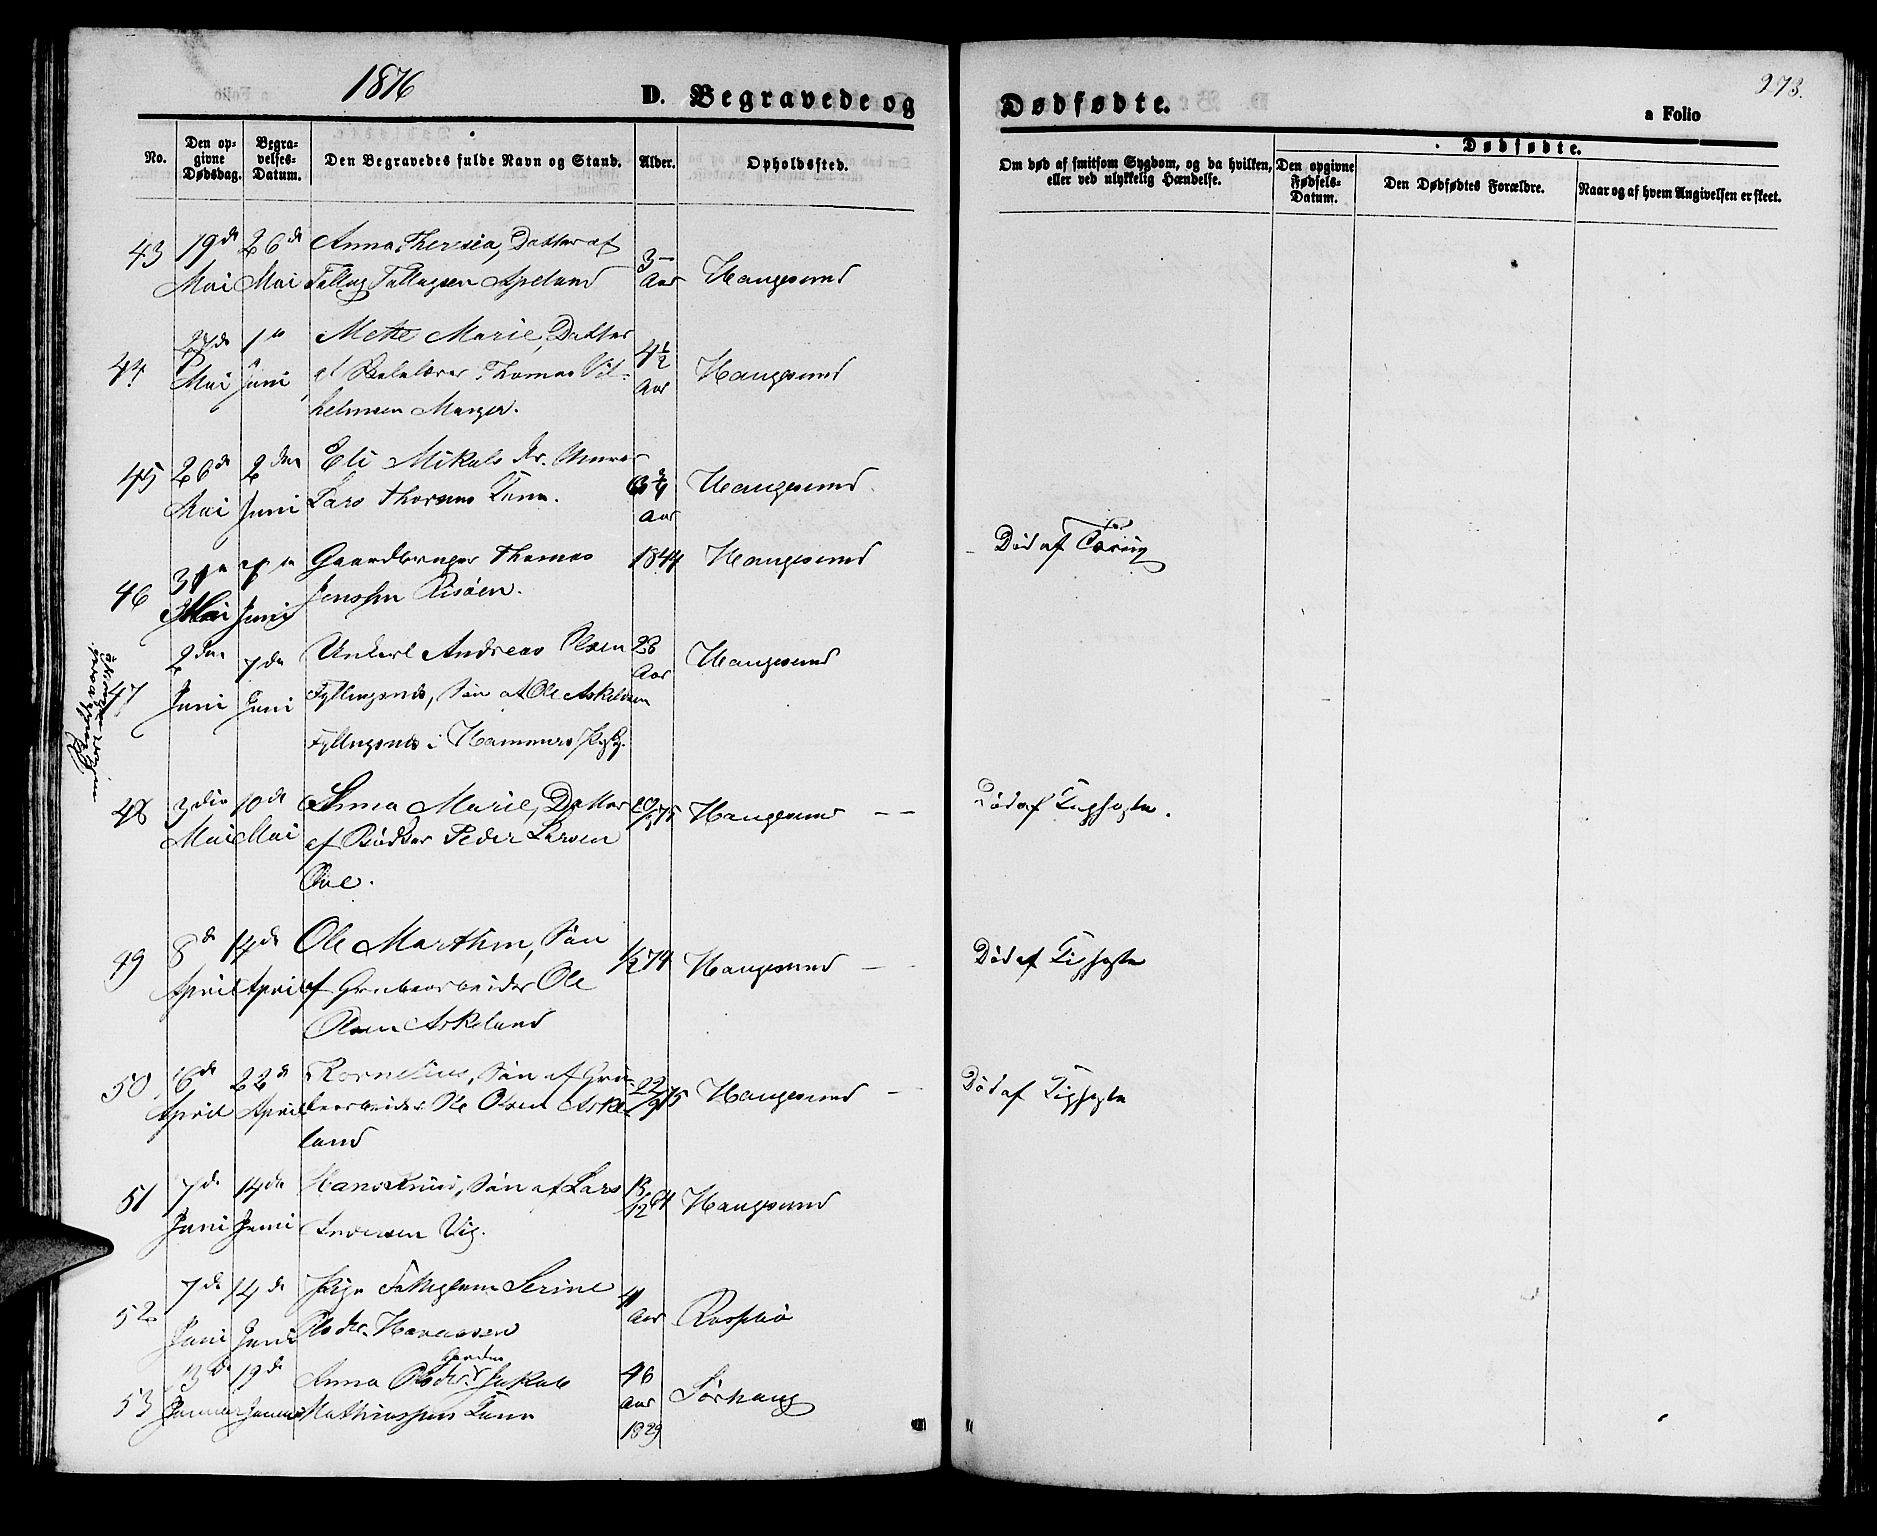 1876
D. Begravede og
Dødfødte.
273.
a Folio
No.
Den opgivne Dødsdag.
Begravelses-Datum.
Den Begravedes fulde Navn og Stand.
Alder.
Opholdssted.
Om død af smitsom Sygdom, og da hvilken, eller ved ulykkelig Hændelse.
Dødfødte.
Den opgivne Fødsels-Datum.
Den Dødfødtes Forældre.
Naar og af hvem Angivelsen er skeet.
43 19de 26de Anna Theresia, Datter af 3
Mai Mai Tollag Tollagsen Apeland Aar Haugesund
44 27de 1ste Mette Marie, Datter 4½
Mai Juni af Skolelærer Thomas Vil-
helmsen Manger. Aar Haugesund
45 26de 2den Eli Mikals
Mai Juni Lars Thorsens Aar Haugesund
46 31te Gaardbruger Thomas 1844 Haugesund Død af Tæring
Mai Juni Jenssen Risøen.
47 2den 7de Unkarl Andreas Olsen 28 Haugesund
Juni Juni Fyllingsnes, Søn af Ole Askelsen Aar
Fyllingsnes i Hammers
48 3die 10de Anna Marie, Datter 75 Haugesund Død af Kighoste.
Mai Mai af Bødker Peder Larsen
49 8de 14de Ole Marthin, Søn 74 Haugesund Død af Kighoste
April April af Grubearbeider Ole
Olsen Askeland
50 6de 22de Kornelius, Søn af Gru- 75 Haugesund Død af Kighoste
April April bearbeider Ole Olsen Aske-
land
51 7de 14de Hans Knud, Søn af Lars 13/12 64 Haugesund
Juni Juni Andersen Vig.
52 7de 14de Pige Serine 41
Juni Juni Aar
53 13de 19de Anna Jakob 46 Sørhaug
Januar Januar Mathiassen Aar
1829